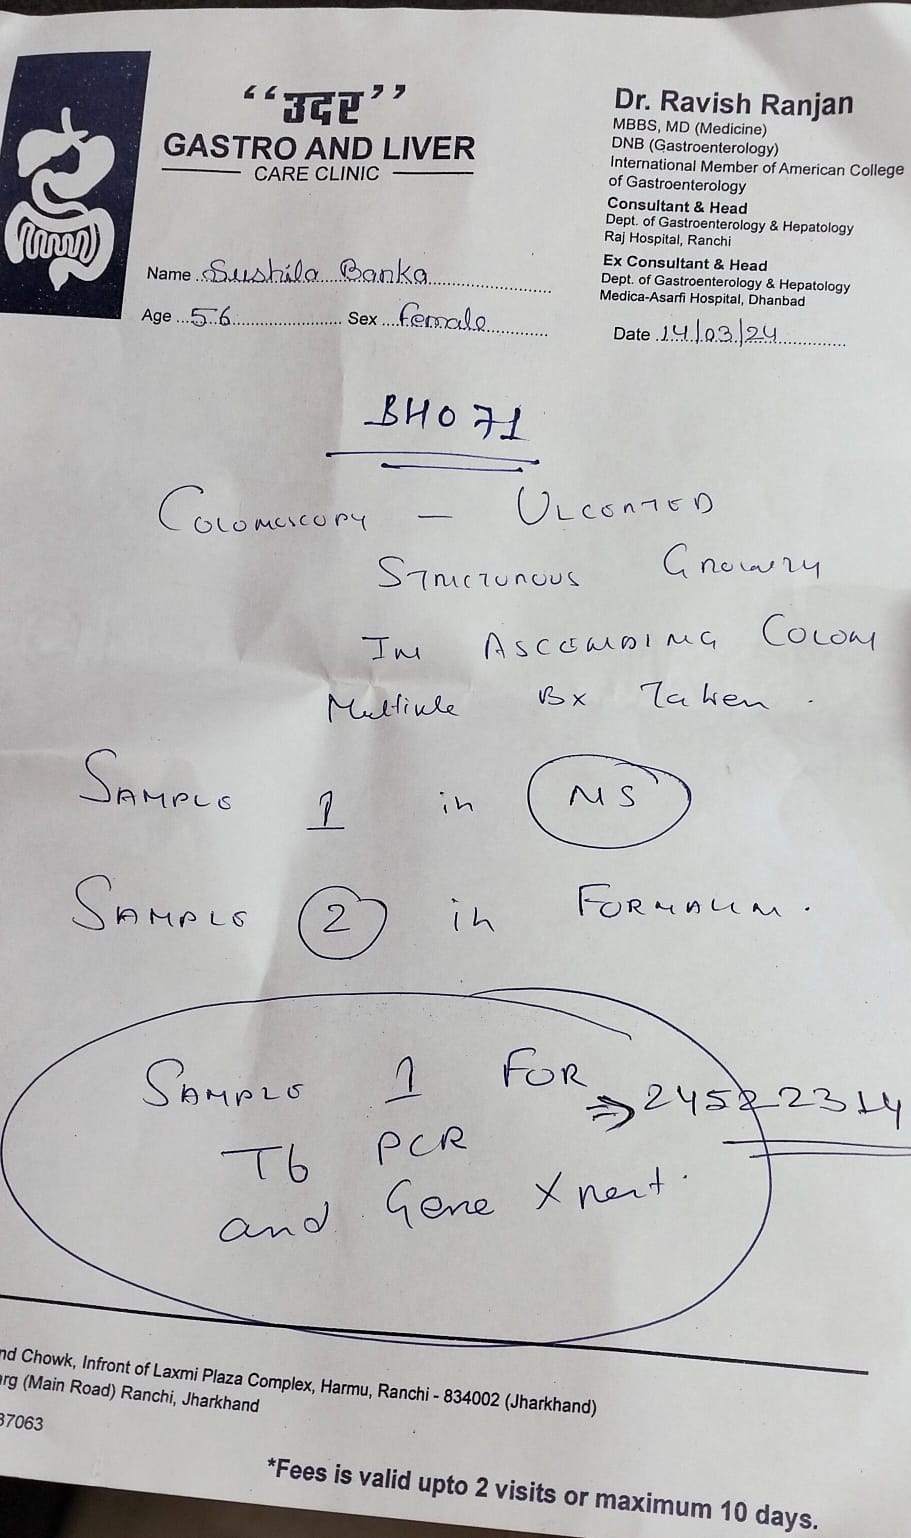 “उदर”
GASTRO AND LIVER
CARE CLINIC
Dr. Ravish Ranjan
MBBS, MD (Medicine)
DNB (Gastroenterology)
International Member of American College
of Gastroenterology
Consultant & Head
Dept. of Gastroenterology & Hepatology
Raj Hospital, Ranchi
Ex Consultant & Head
Dept. of Gastroenterology & Hepatology
Medica-Asarfi Hospital, Dhanbad
Name Sushila Banka
Age 56 Sex female
Date 14/03/24
BH071
COLONOSCOPY - ULCERATED
STRICTUROUS GROWTH
IN ASCENDING COLON
Multiple Bx Taken.
SAMPLE 1 in NS
SAMPLE 2 in FORMALIN.
SAMPLE 1 FOR
⇒ 24522314
Tb PCR
and Gene Xpert.
nd Chowk, Infront of Laxmi Plaza Complex, Harmu, Ranchi - 834002 (Jharkhand)
arg (Main Road) Ranchi, Jharkhand
37063
*Fees is valid upto 2 visits or maximum 10 days.